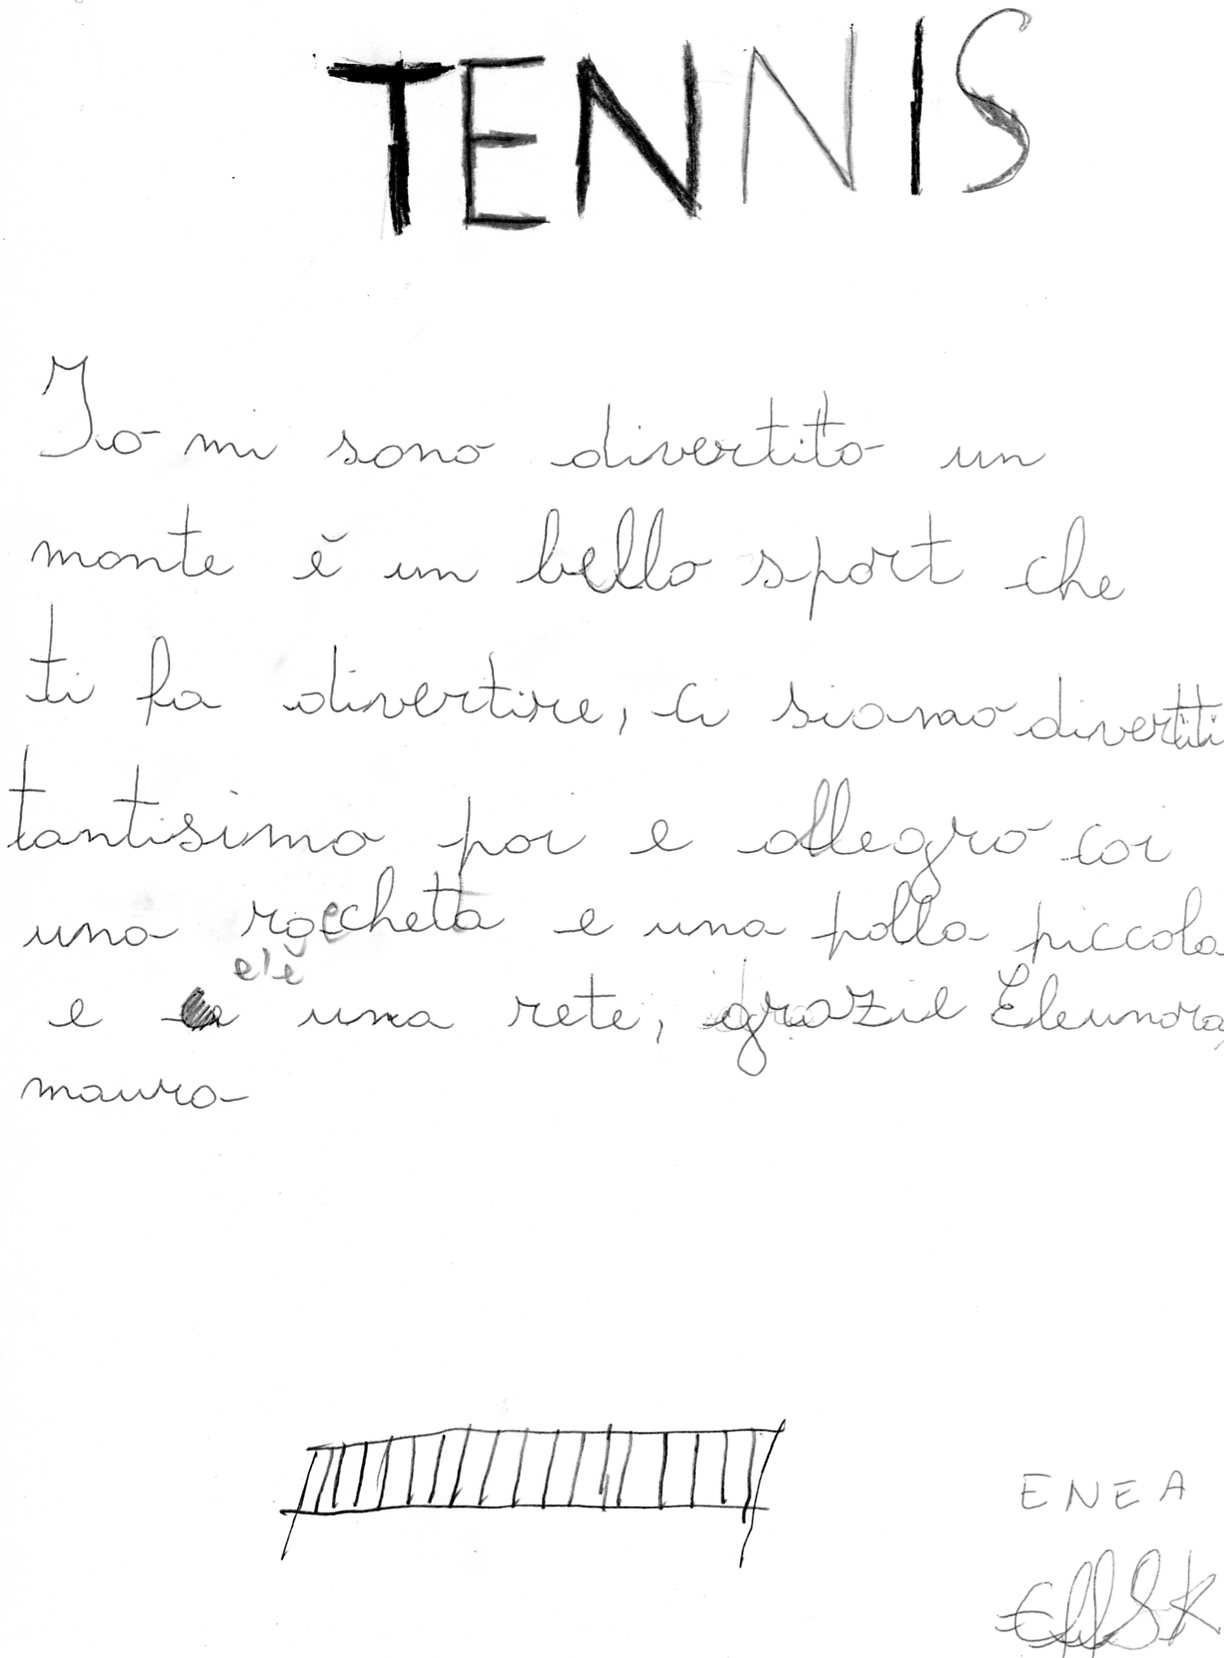 TENNIS
Io mi sono divertito un
monte è un bello sport che
ti fa divertire, ci siamo divertiti
tantisimo poi e allegro coi
una raccheta e una palla piccola
e c'è
e una rete, grazie Eleunora,
mauro
ENEA